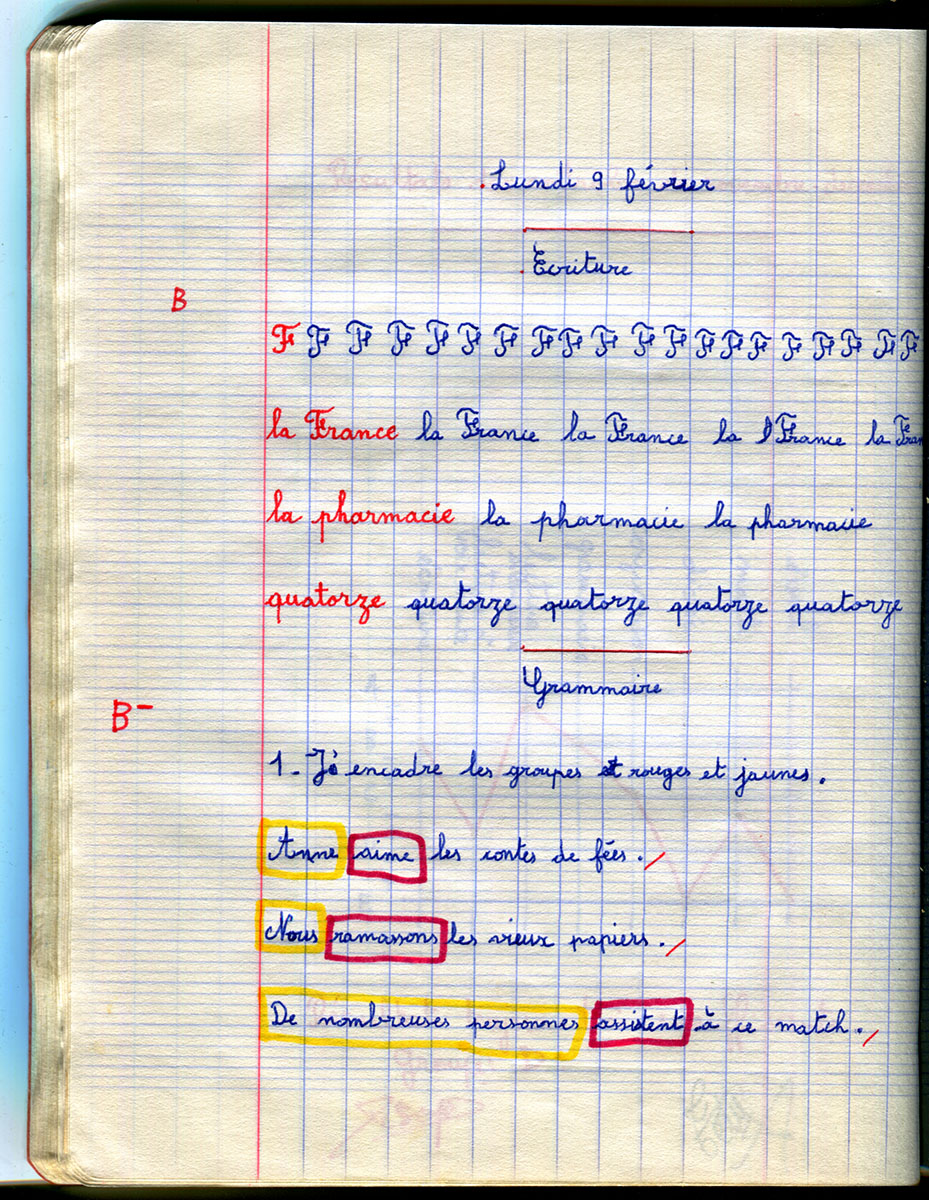 Lundi 9 février
Ecriture
B
F F F F F F F F F F F F F F F F F F F F
la France la France la France la France la Fran
la pharmacie la pharmacie la pharmacie
quatorze quatorze quatorze quatorze quatorze
Grammaire
B-
1. J' encadre les groupes rouges et jaunes.
Anne aime les contes de fées.
Nous ramassons les vieux papiers.
De nombreuses personnes assistent à ce match.